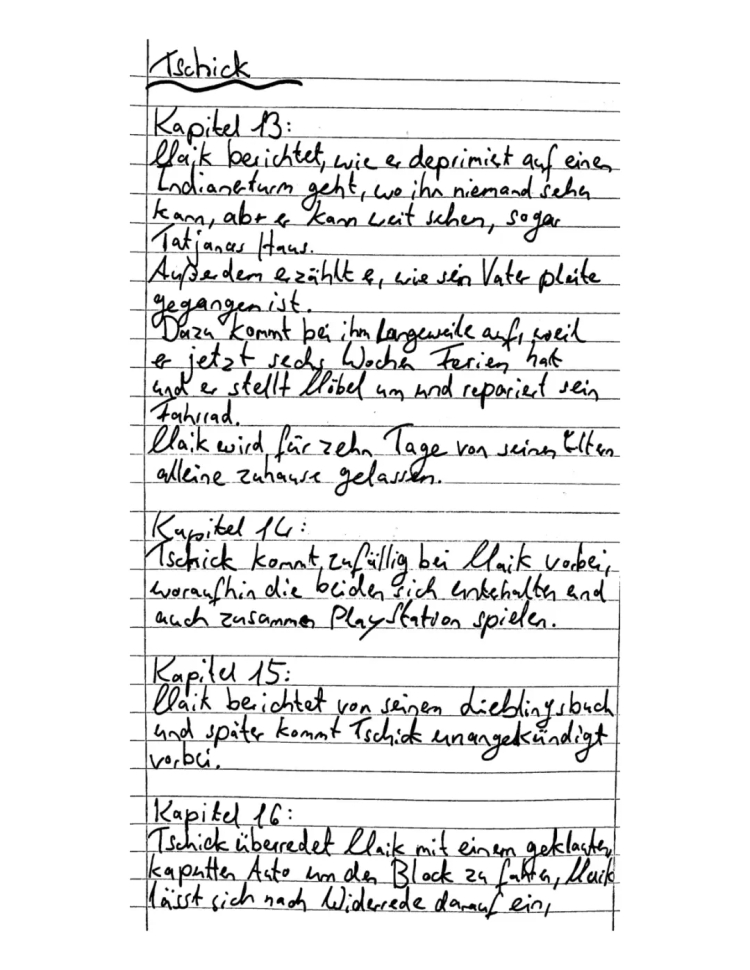 Tschick
Kapitel 13:
Maik berichtet, wie er deprimiert auf einen
Indianerturm geht, wo ihn niemand sehen
kann, aber er kann weit sehen, sogar
Tatjanas Haus.
Außerdem erzählt er, wie sein Vater pleite
gegangen ist.
Dazu kommt bei ihm Langeweile auf, weil
er jetzt sechs Wochen Ferien hat
und er stellt Möbel um und repariert sein
Fahrrad.
Maik wird für zehn Tage von seinen Eltern
alleine zuhause gelassen.
Kapitel 14:
Tschick kommt zufällig bei Maik vorbei,
woraufhin die beiden sich unterhalten und
auch zusammen PlayStation spielen.
Kapitel 15:
Maik berichtet von seinem Lieblingsbuch
und später kommt Tschick unangekündigt
vorbei.
Kapitel 16:
Tschick überredet Maik mit einem geklauten,
kaputten Auto um den Block zu fahren, Maik
lässt sich nach Widerrede darauf ein,